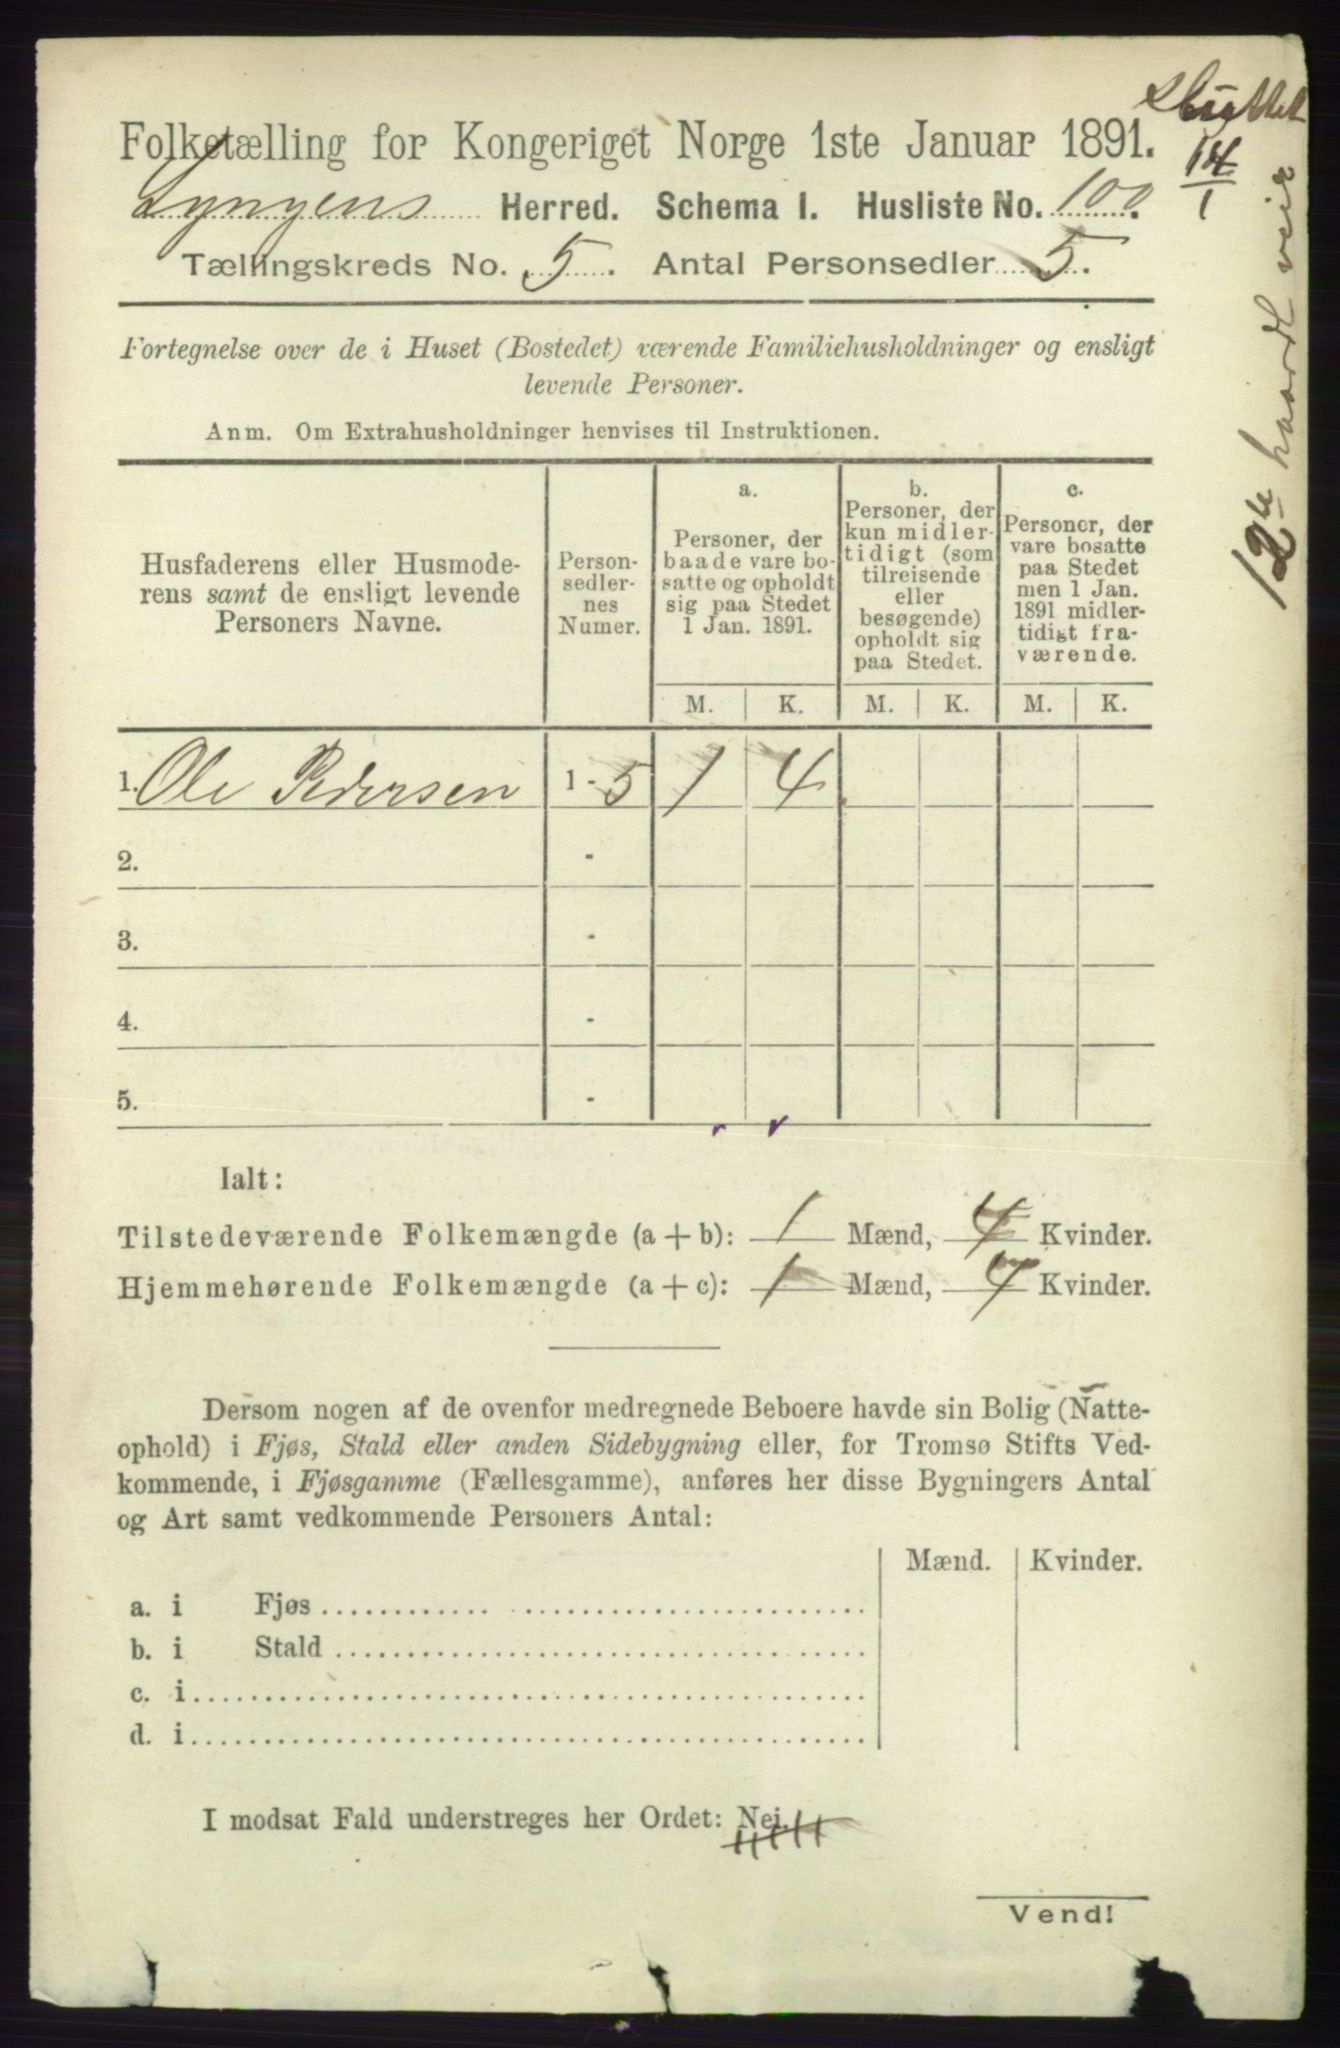 Sluttet
14/1
Folketælling for Kongeriget Norge 1ste Januar 1891.
Lyngens Herred. Schema I. Husliste No. 100.
Tællingskreds No. 5. Antal Personsedler 5.
12te haardt veir
Fortegnelse over de i Huset (Bostedet) værende Familiehusholdninger og ensligt
levende Personer.
Anm. Om Extrahusholdninger henvises til Instruktionen.
Husfaderens eller Husmode-
rens samt de ensligt levende
Personers Navne.
Person-
sedler-
nes
Numer.
a.
Personer, der
baade vare bo-
satte og opholdt
sig paa Stedet
1 Jan. 1891.
b.
Personer, der
kun midler-
tidigt (som
tilreisende
eller
besøgende)
opholdt sig
paa Stedet.
c.
Personer, der
vare bosatte
paa Stedet
men 1 Jan.
1891 midler-
tidigt fra-
værende.
M. K. M. K. M. K.
1. Ole Pedersen 1 - 5 1 4
2. -
3. -
4. -
5. -
Ialt:
Tilstedeværende Folkemængde (a + b): 1 Mænd, 4 Kvinder.
Hjemmehørende Folkemængde (a + c): 1 Mænd, 4 Kvinder.
Dersom nogen af de ovenfor medregnede Beboere havde sin Bolig (Natte-
ophold) i Fjøs, Stald eller anden Sidebygning eller, for Tromsø Stifts Ved-
kommende, i Fjøsgamme (Fællesgamme), anføres her disse Bygningers Antal
og Art samt vedkommende Personers Antal:
Mænd. Kvinder.
a. i Fjøs
b. i Stald
c. i
d. i
I modsat Fald understreges her Ordet: Nei.
Vend!